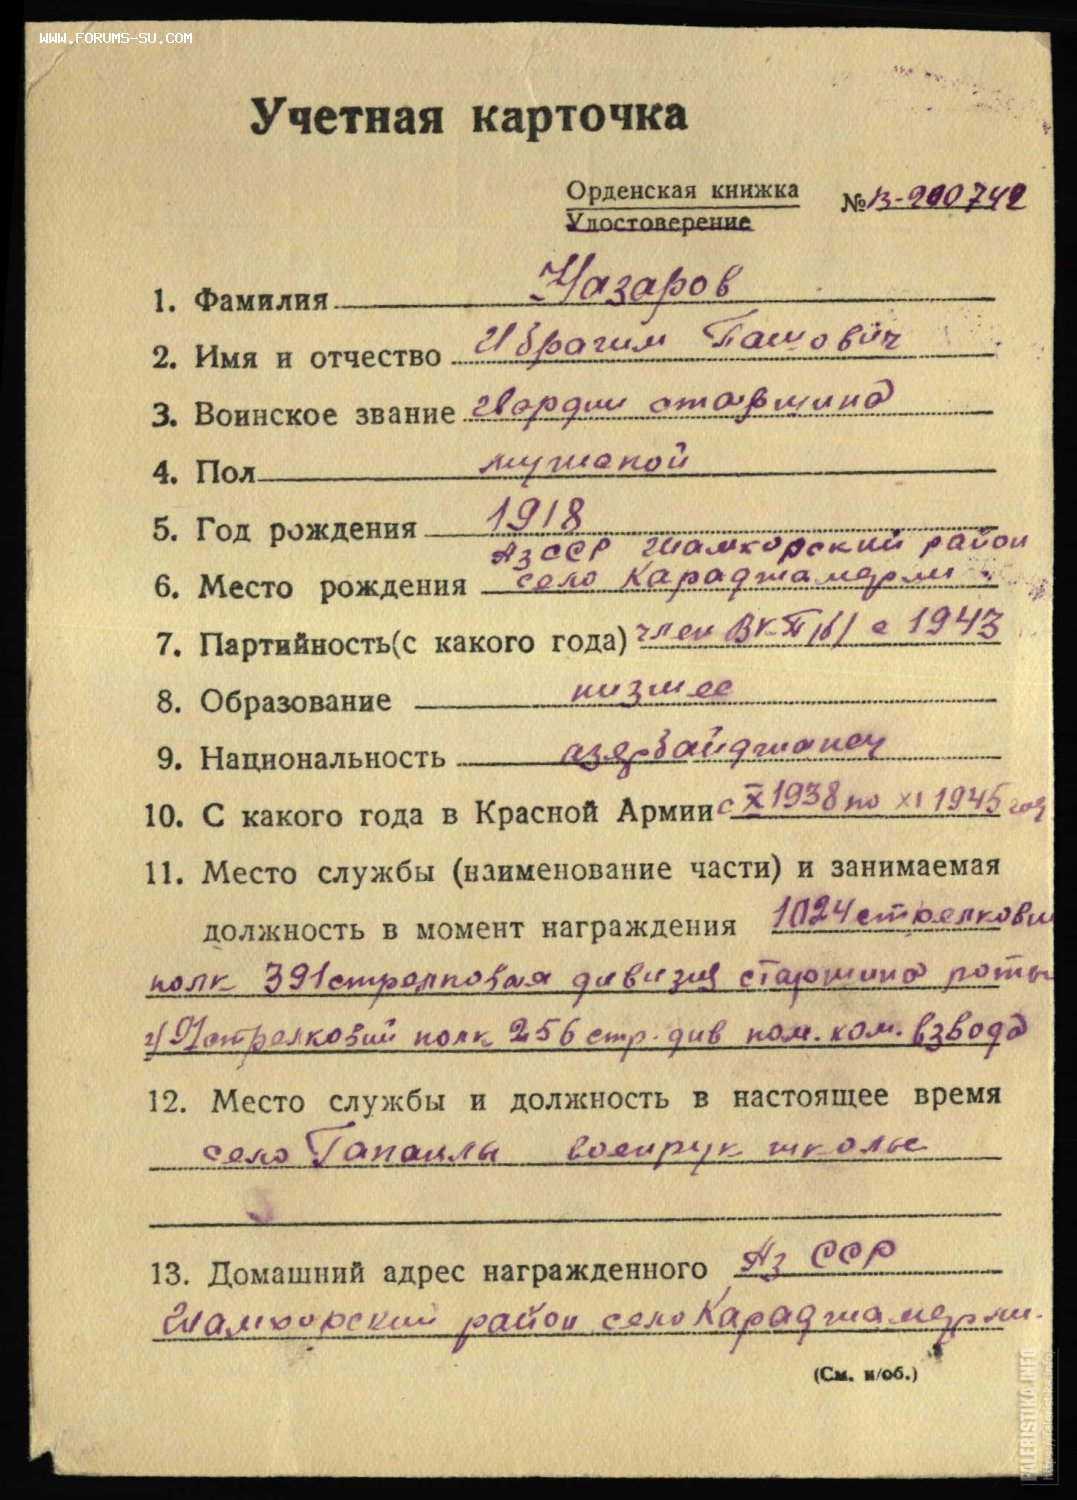 WWW.FORUMS-SU.COM
Учетная карточка
Орденская книжка
Удостоверение
№ В-900742
1. Фамилия Назаров
2. Имя и отчество Ибрагим Пашович
3. Воинское звание Гвардии старшина
4. Пол мужской
5. Год рождения 1918
АзССР Шамхорский район
6. Место рождения село Караджамерли
7. Партийность(с какого года) член ВКП/б/ с 1943
8. Образование низшее
9. Национальность азербайджанец
10. С какого года в Красной Армии с X 1938 по XI 1945 год
11. Место службы (наименование части) и занимаемая
должность в момент награждения 1024 стрелковый
полк 391 стрелковая дивизия старшина роты
стрелковий полк 256 стр. див пом. ком. взвода
12. Место службы и должность в настоящее время
село военрук школы
13. Домашний адрес награжденного Аз ССР
Шамхорский район село Караджамерли.
(См. н/об.)
FALERISTIKA.INFO